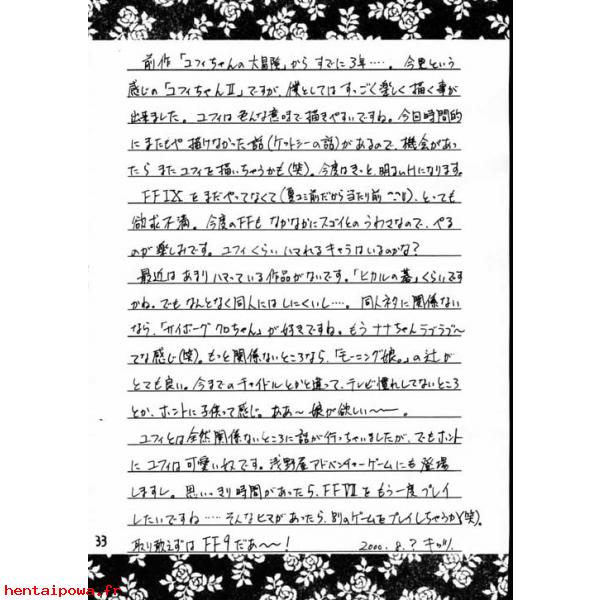 前作「ユフィちゃんの大冒険」からすでに3年‥‥。今更という
感じの「ユフィちゃんⅡ」ですが、僕としてはすっごく楽しく描く事が
出来ました。ユフィはそんな意味で描きやすいですね。今回時間的
にまたもや描けなかった話(ケットシーの話)があるので、機会があっ
たらまたユフィを描いちゃうかも(笑)。今度はきっと、明るいHになります。
FFⅨをまだやってなくて(夏コミ前だから当たり前^^;)、とっても
欲求不満。今度のFFもなかなかにスゴイとのうわさなので、やる
のが楽しみです。ユフィくらいハマれるキャラはいるのかな?
最近はあまりハマっている作品がないです。「ヒカルの碁」くらいです
かね。でもなんとなく同人にはしにくいし‥‥。同人ネタに関係ない
なら、「サイボーグクロちゃん」が好きですね。もうナナちゃんラブラブ〜
てな感じ(笑)。もっと関係ないところなら、「モーニング娘。」の辻が
とても良い。今までのチャイドルとかと違って、テレビ慣れしてないところ
とか、ホントに子供って感じ。ああ〜娘が欲しい〜。
ユフィとは全然関係ないところに話が行っちゃいましたが、でもホント
にユフィは可愛いわです。浅野屋アドベンチャーゲームにも登場
しますし。思いっきり時間があったら、FFⅦをもう一度プレイ
したいですね‥‥そんなヒマがあったら、別のゲームをプレイしちゃうか(笑)。
取り敢えずはFF9だあ〜!
2000.8.?キッツ.
33
hentaipowa.fr